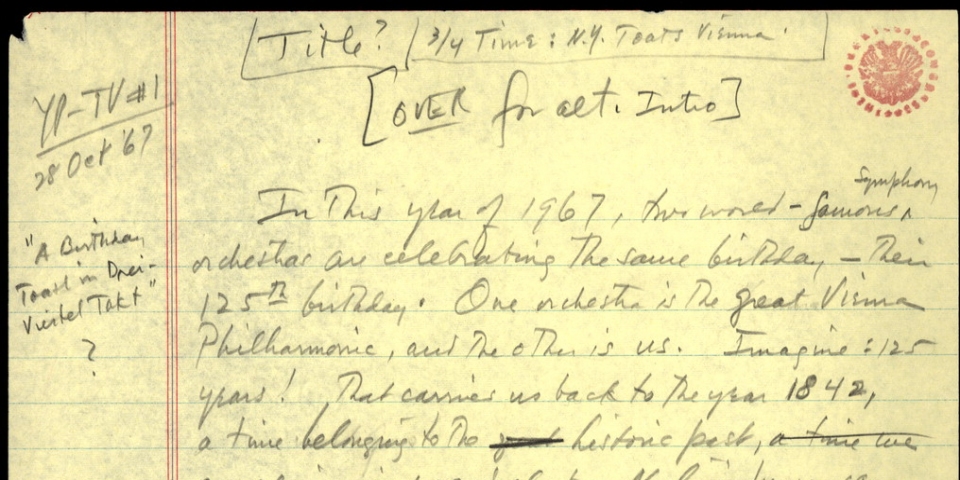 Title? 3/4 Time: N.Y. Toasts Vienna.
[OVER for alt. Intro]
YP-TV #1
28 Oct '67
"A Birthday
Toast in Drei-
Viertel Takt"
?
Symphony
In this year of 1967, two world-famous
orchestras are celebrating the same birthday, – their
125th birthday. One orchestra is the great Vienna
Philharmonic, and the other is us. Imagine: 125
years! That carries us back to the year 1842,
a time belonging to the historic past, a time we